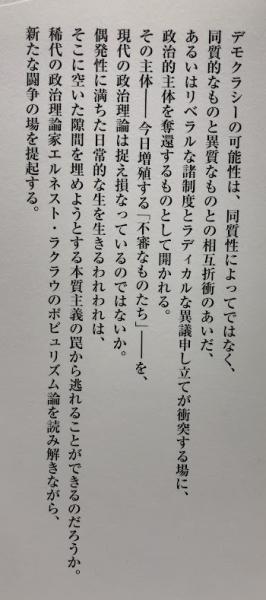 デモクラシーの可能性は、同質性によってではなく、
同質的なものと異質なものとの相互折衝のあいだ、
あるいはリベラルな諸制度とラディカルな異議申し立てが衝突する場に、
政治的主体を奪還するものとして開かれる。
その主体――今日増殖する「不審なものたち」――を、
現代の政治理論は捉え損なっているのではないか。
偶発性に満ちた日常的な生を生きるわれわれは、
そこに空いた隙間を埋めようとする本質主義の罠から逃れることができるのだろうか。
稀代の政治理論家エルネスト・ラクラウのポピュリズム論を読み解きながら、
新たな闘争の場を提起する。